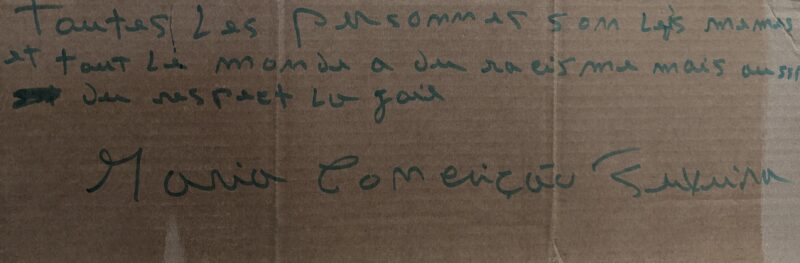 Toutes Les personnes son Les memes
et tout Le monde a du racisme mais aussi
du respect La gaie
Maria Conceição Teixeira